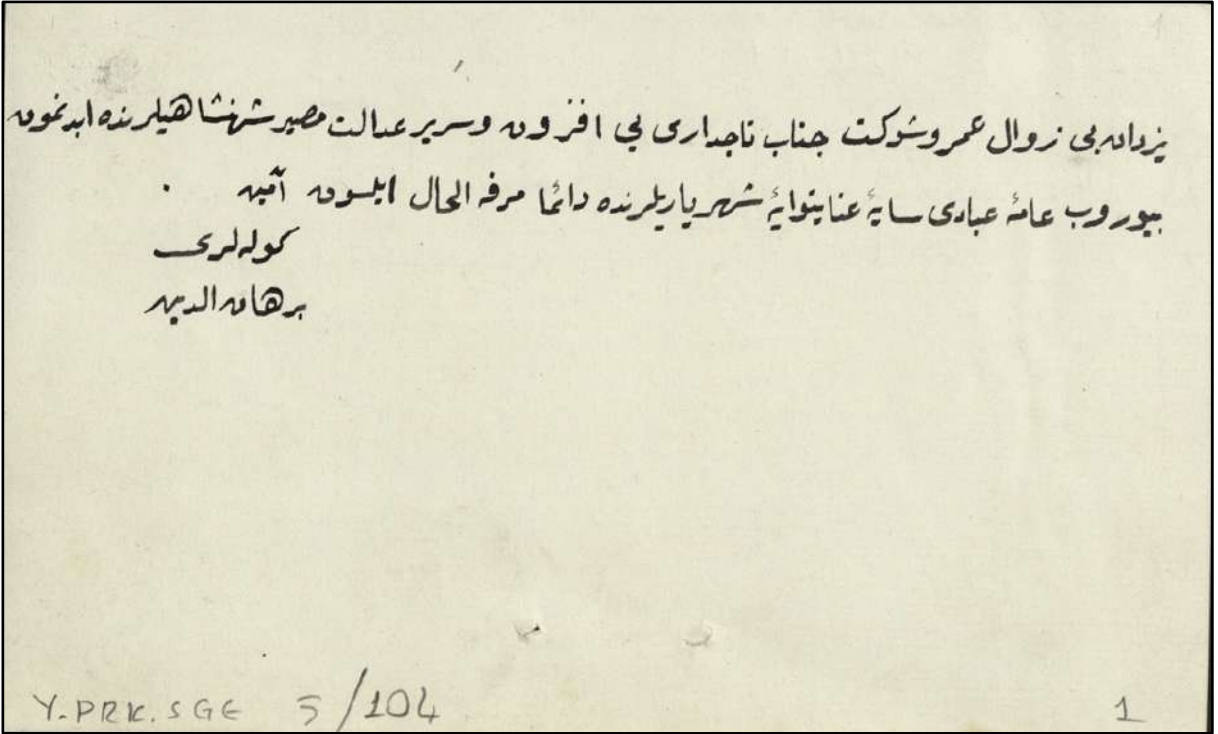 یزدان بی زوال عمر و شوکت جناب تاجداری یی افزون و سریر عدالت مصیر شهنشاهیلرنده ابدنمون
بیوروب عامۀ عبادی سایۀ عنایتوایۀ شهریاریلرنده دائما مرفه الحال ایلسون آمین
کوله لری
برهان الدین
Y.PRK.SGE 5/104
1